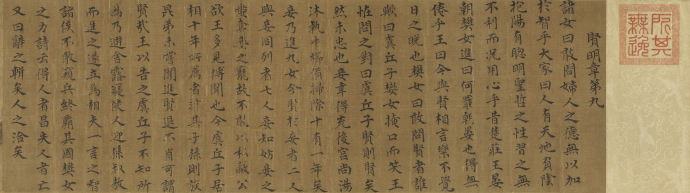 所其無逸
賢明章第九
諸女曰敢問婦人之德無以加
於智乎大家曰人肖天地負陰
抱陽有聰明賢哲之性習之無
不利而況用心乎昔楚莊王晏
朝樊女進曰何罷朝晏也得無
倦乎王曰今與賢相言樂不覺
日之晚也樊女曰敢問賢者誰
歟曰虞丘子樊女掩口而笑王
怪問之對曰虞丘子賢則賢矣
然未忠也妾幸得充後宮尚湯
沐執巾櫛備掃除十有一年矣
妾乃進九女今賢於妾者二人
與妾同列者七人妾知妨妾之
愛奪妾之寵然不敢以私蔽公
欲王多見博聞也今虞丘子居
相十年所薦者非其子孫則宗
族昆弟未嘗聞進賢退不肖可謂
賢哉王以告之虞丘子不知所
為乃避舍露寢使人迎孫叔敖
而進之遂立為相夫一言之智
諸侯不敢窺兵終霸其國樊女
之力詩云得人者昌失人者亡
又曰辭之輯矣人之洽矣